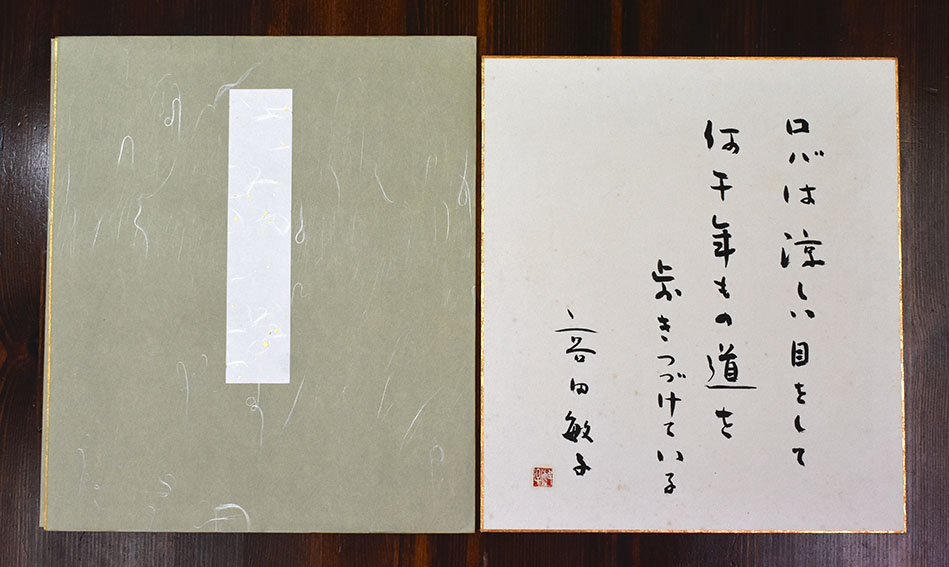 ロバは涼しい目をして
何千年もの道を
歩きつづけている
容田敏子